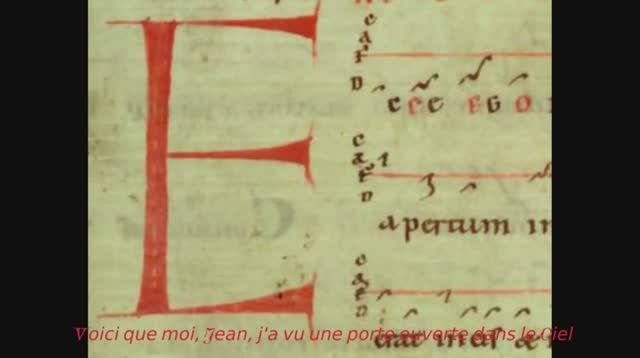 E
c
a
F
D
ECCE EGO
c
a
F
D
apertum in
c
a
F
D
Voici que moi, Jean, j'a vu une porte ouverte dans le Ciel